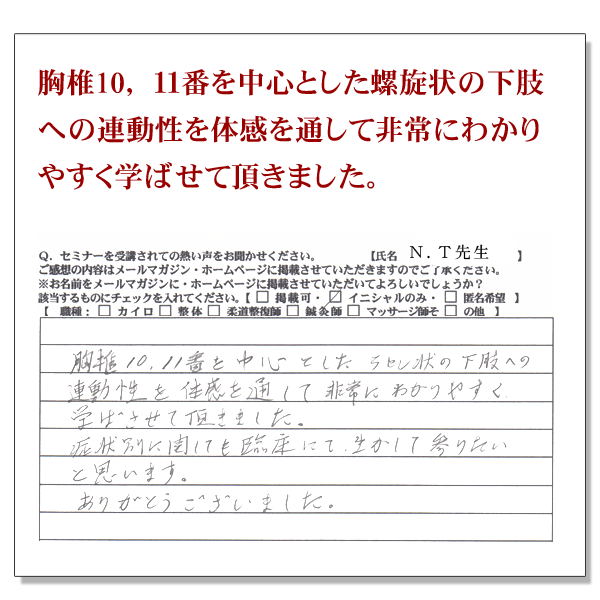 胸椎10，11番を中心とした螺旋状の下肢
への連動性を体感を通して非常にわかり
やすく学ばせて頂きました。
Q．セミナーを受講されての熱い声をお聞かせください。 【氏名 N．T先生 】
ご感想の内容はメールマガジン・ホームページに掲載させていただきますのでご了承ください。
※お名前をメールマガジンに・ホームページに掲載させていただいてよろしいでしょうか？
該当するものにチェックを入れてください。【 □ 掲載可・ ☑ イニシャルのみ・ □ 匿名希望 】
【 職種： □ カイロ □ 整体 □ 柔道整復師 □ 鍼灸師 □ マッサージ師そ □ の他 】
胸椎10，11番を中心とした らせん状の下肢への
連動性を体感を通して非常にわかりやすく
学ばさせて頂きました。
症状別に関しても臨床にて生かして参りたい
と思います。
ありがとうございました。